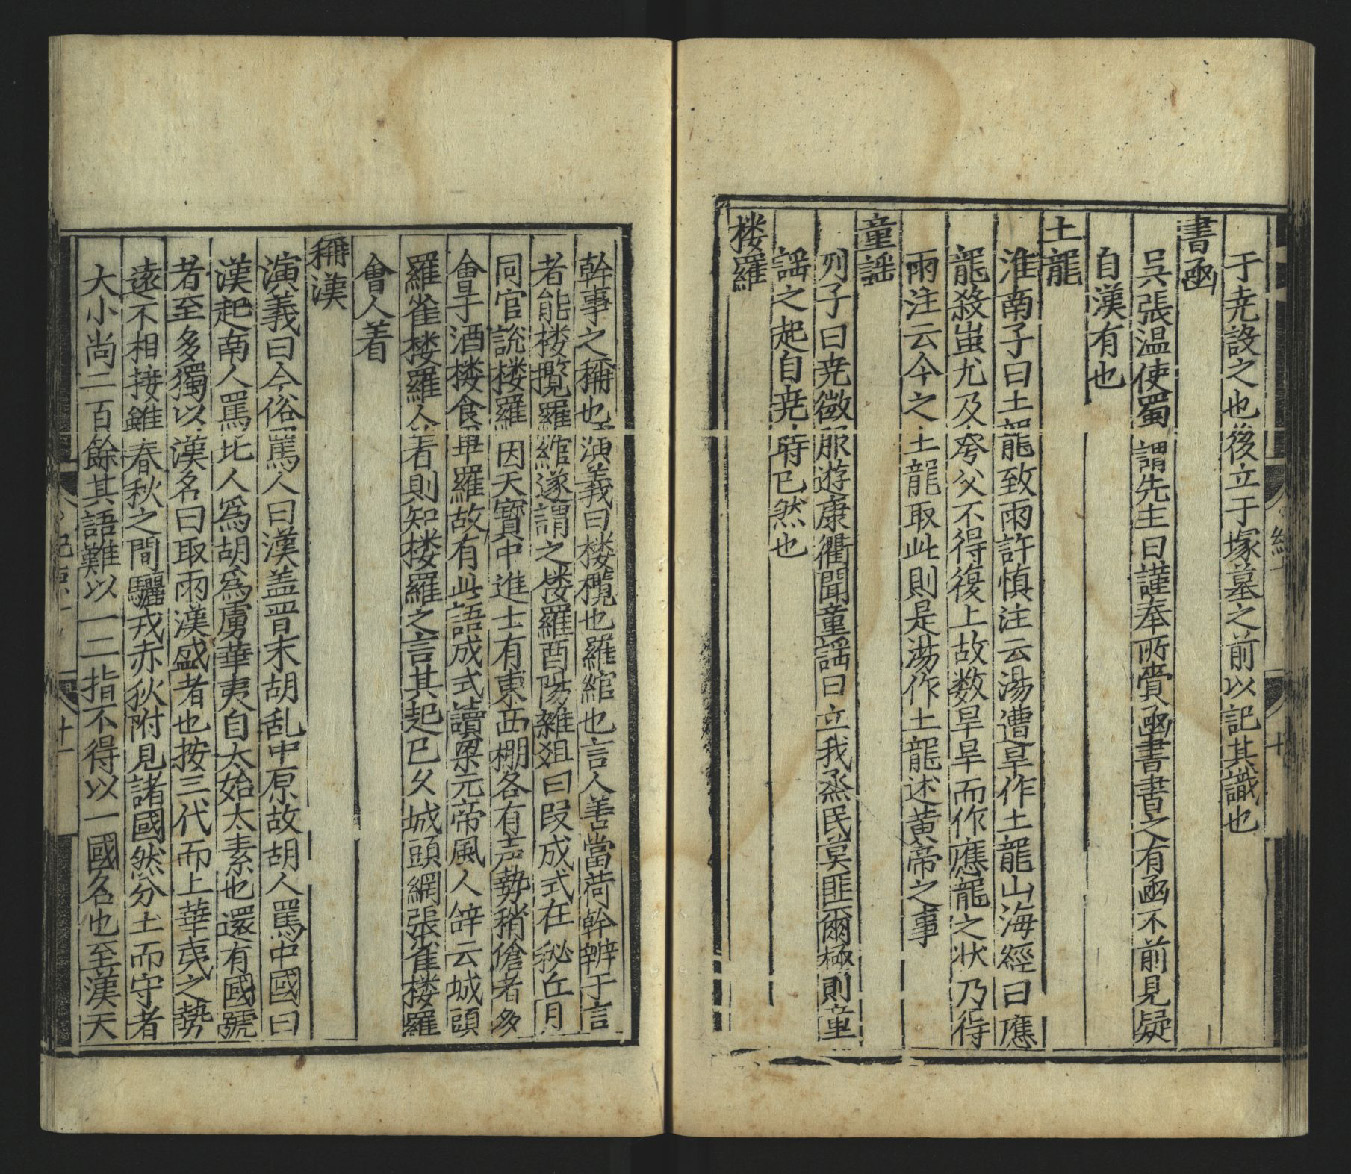 于尭設之也後立于塚墓之前以記其識也
書凾
吳張温使蜀謂先主曰謹奉所賫凾書書之有凾不前見疑
自漢有也
土龍
淮南子曰土龍致雨許慎注云湯遭旱作土龍山海經曰應
龍殺蚩尤及夸父不得復上故数旱旱而作應龍之狀乃得
雨注云今之土龍取此則是湯作土龍述黃帝之事
童謡
列子曰尭微服遊康衢聞童謡曰立我烝民莫匪爾極則童
謡之起自尭時已然也
楼羅
幹事之稱也演義曰楼攬也羅綰也言人善當荷幹辨于言
者能楼攬羅綰遂謂之楼羅酉陽雜俎曰叚成式在秘丘月
同官說楼羅因天寳中進士有東西棚各有声勢稍傖者多
會于酒楼食毕羅故有此語成式讀梁元帝風人辞云城頭
羅雀楼羅人着則知楼羅之言其起已久城頭網張雀楼羅
會人着
稱漢
演義曰今俗罵人曰漢盖晋末胡乱中原故胡人罵中國曰
漢起南人罵北人為胡為虜華夷自太始太素也還有國號
者至多獨以漢名曰取兩漢盛者也按三代而上華夷之勢
遠不相接雖春秋之間驪戎赤狄附見諸國然分土而守者
大小尚二百餘其語難以一二指不得以一國名也至漢天